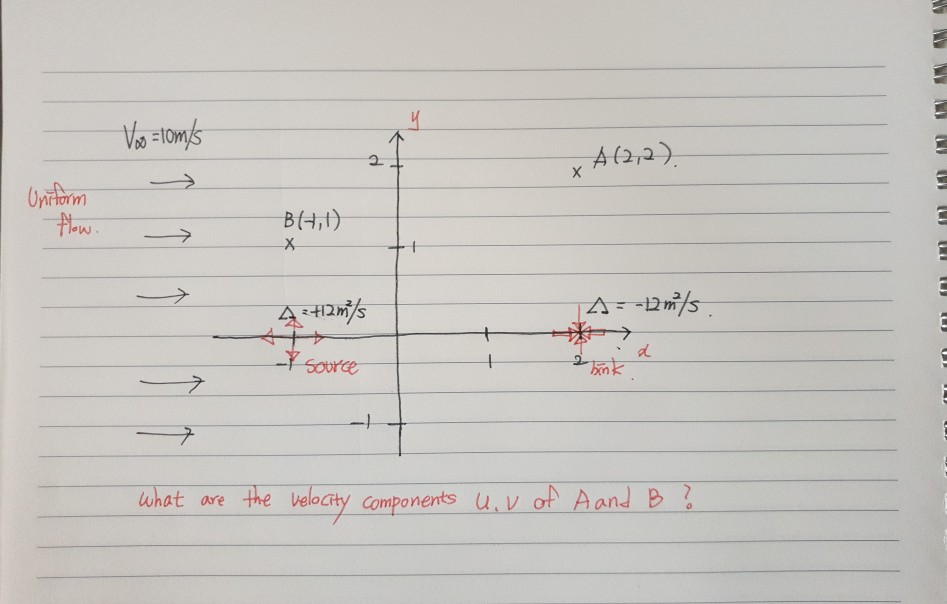 y
V∞ =10m/s
2
A(2,2).
Uniform
flow.
B(-1,1)
1
Δ =+12m²/s
Δ = -12m²/s.
-1
source
1
2
-1
What are the velocity components u.v of A and B ?